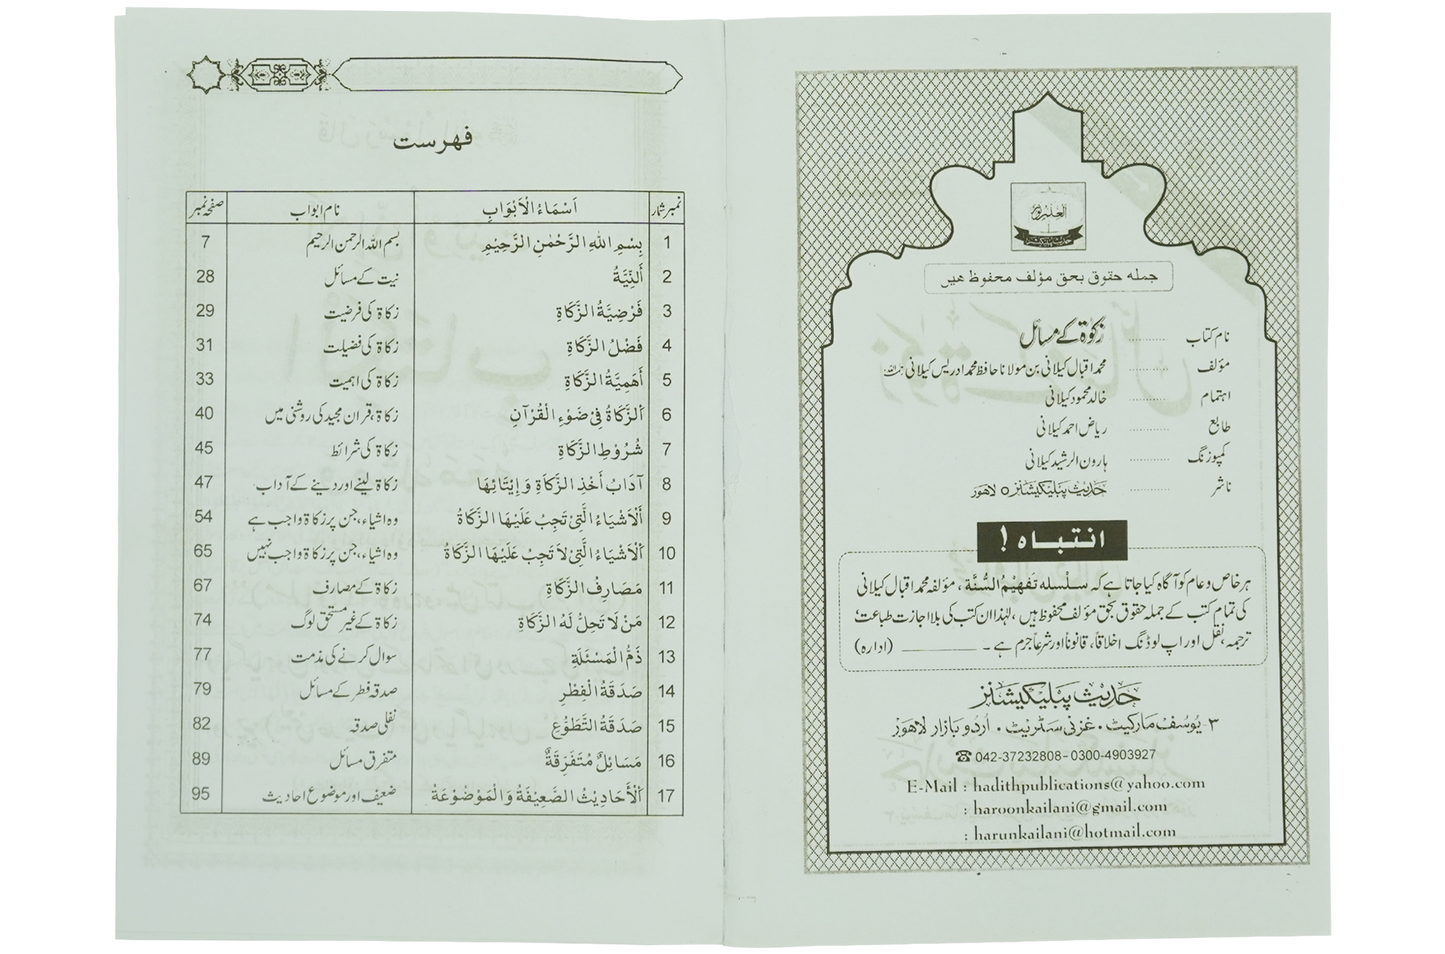 العلم نور
جملہ حقوق بحق مؤلف محفوظ ہیں
نام کتاب .......... زکوٰۃ کے مسائل
مؤلف .......... محمد اقبال کیلانی بن مولانا حافظ محمد ادریس کیلانی
اہتمام .......... خالد محمود کیلانی
طابع .......... ریاض احمد کیلانی
کمپوزنگ .......... ہارون الرشید کیلانی
ناشر .......... حدیث پبلیکیشنز لاھور
انتباہ !
ہر خاص و عام کو آگاہ کیا جاتا ہے کہ سلسلہ تفہیم السُّنَّۃ، مؤلفہ محمد اقبال کیلانی
کی تمام کتب کے جملہ حقوق بحق مؤلف محفوظ ہیں، لہٰذا ان کتب کی بلا اجازت طباعت،
ترجمہ، نقل اور اپ لوڈنگ اخلاقاً، قانوناً اور شرعاً جرم ہے۔ ________ (ادارہ)
حدیث پبلیکیشنز
۳ یُوسف مارکیٹ ۔ غزنی سٹریٹ ۔ اُردو بازار لاھَوْر
☎ 042-37232808 - 0300-4903927
E-Mail : hadithpublications@yahoo.com
: haroonkailani@gmail.com
: harunkailani@hotmail.com
فہرست
نمبر شمار اَسْمَاءُ الْاَبْوَابِ نام ابواب صفحہ نمبر
1 بِسْمِ اللّٰهِ الرَّحْمٰنِ الرَّحِيْمِ بسم اللہ الرحمن الرحیم 7
2 أَلنِّيَّةُ نیت کے مسائل 28
3 فَرْضِيَّةُ الزَّكَاةِ زکاۃ کی فرضیت 29
4 فَضْلُ الزَّكَاةِ زکاۃ کی فضیلت 31
5 أَهَمِيَّةُ الزَّكَاةِ زکاۃ کی اہمیت 33
6 اَلزَّكَاةُ فِيْ ضَوْءِ الْقُرْآنِ زکاۃ، قران مجید کی روشنی میں 40
7 شُرُوْطِ الزَّكَاةِ زکاۃ کی شرائط 45
8 آدَابُ أَخْذِ الزَّكَاةِ وَإِيْتَائِهَا زکاۃ لینے اور دینے کے آداب 47
9 أَلْاَشْيَاءُ الَّتِيْ تَجِبُ عَلَيْهَا الزَّكَاةُ وہ اشیاء، جن پر زکاۃ واجب ہے 54
10 أَلْاَشْيَاءُ الَّتِيْ لَا تَجِبُ عَلَيْهَا الزَّكَاةُ وہ اشیاء، جن پر زکاۃ واجب نہیں 65
11 مَصَارِفُ الزَّكَاةِ زکاۃ کے مصارف 67
12 مَنْ لَا تَحِلُّ لَهُ الزَّكَاةُ زکاۃ کے غیر مستحق لوگ 74
13 ذَمُّ الْمَسْئَلَةِ سوال کرنے کی مذمت 77
14 صَدَقَةُ الْفِطْرِ صدقہ فطر کے مسائل 79
15 صَدَقَةُ التَّطَوُّعِ نفلی صدقہ 82
16 مَسَائِلُ مُتَفَرِّقَةٌ متفرق مسائل 89
17 اَلْأَحَادِيْثُ الضَّعِيْفَةُ وَالْمَوْضُوْعَةُ ضعیف اور موضوع احادیث 95